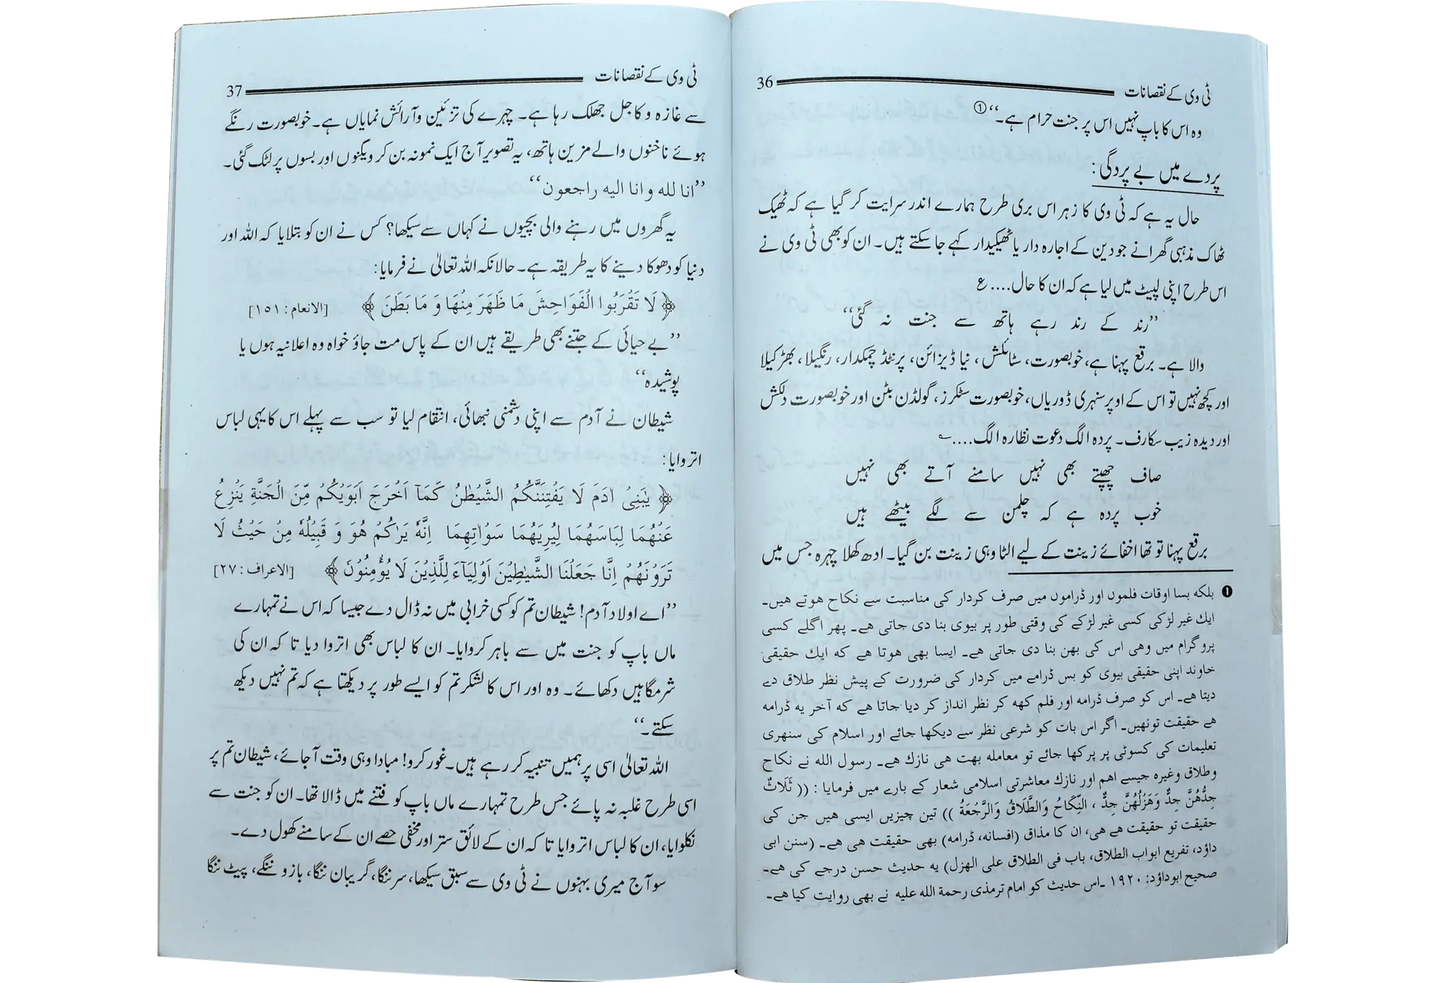 36 ٹی وی کے نقصانات
وہ اس کا باپ نہیں اس پر جنت حرام ہے۔“ ①
پردے میں بے پردگی:
حال یہ ہے کہ ٹی وی کا زہر اس بری طرح ہمارے اندر سرایت کر گیا ہے کہ ٹھیک
ٹھاک مذہبی گھرانے جو دین کے اجارہ دار یا ٹھیکیدار کہے جا سکتے ہیں۔ ان کو بھی ٹی وی نے
اس طرح اپنی لپیٹ میں لیا ہے کہ ان کا حال.... ع
”رند کے رند رہے ہاتھ سے جنت نہ گئی“
والا ہے۔ برقع پہنا ہے، خوبصورت، سٹائلش، نیا ڈیزائن، پرنٹڈ چمکدار، رنگیلا، بھڑکیلا
اور کچھ نہیں تو اس کے اوپر سنہری ڈوریاں، خوبصورت سٹکرز، گولڈن بٹن اور خوبصورت دلکش
اور دیدہ زیب سکارف۔ پردہ الگ دعوت نظارہ الگ....۔
صاف چھپتے بھی نہیں سامنے آتے بھی نہیں
خوب پردہ ہے کہ چلمن سے لگے بیٹھے ہیں
برقع پہنا تو تھا اخفائے زینت کے لیے الٹا وہی زینت بن گیا۔ ادھ کھلا چہرہ جس میں
❶ بلکہ بسا اوقات فلموں اور ڈراموں میں صرف کردار کی مناسبت سے نکاح ہوتے ہیں۔
ایک غیر لڑکی کسی غیر لڑکے کی وقتی طور پر بیوی بنا دی جاتی ہے۔ پھر اگلے کسی
پروگرام میں وہی اس کی بھن بنا دی جاتی ہے۔ ایسا بھی ہوتا ہے کہ ایک حقیقی
خاوند اپنی حقیقی بیوی کو بس ڈرامے میں کردار کی ضرورت کے پیش نظر طلاق دے
دیتا ہے۔ اس کو صرف ڈرامہ اور فلم کھہ کر نظر انداز کر دیا جاتا ہے کہ آخر یہ ڈرامہ
ہے حقیقت تو نھیں۔ اگر اس بات کو شرعی نظر سے دیکھا جائے اور اسلام کی سنھری
تعلیمات کی کسوٹی پر پرکھا جائے تو معاملہ بھت ھی نازک ہے۔ رسول اللہ نے نکاح
وطلاق وغیرہ جیسے اھم اور نازک معاشرتی اسلامی شعار کے بارے میں فرمایا: (( ثَلَاثٌ
جِدُّهُنَّ جِدٌّ وَهَزْلُهُنَّ جِدٌّ ، النِّكَاحُ وَالطَّلَاقُ وَالرَّجْعَةُ )) تین چیزیں ایسی ھیں جن کی
حقیقت تو حقیقت ہے ھی، ان کا مذاق (افسانہ، ڈرامہ) بھی حقیقت ھی ہے۔ (سنن ابی
داؤد، تفریع ابواب الطلاق، باب فی الطلاق علی الھزل) یہ حدیث حسن درجے کی ہے۔
صحیح ابوداؤد: ۱۹۲۰۔ اس حدیث کو امام ترمذی رحمۃ اللہ علیہ نے بھی روایت کیا ہے۔
37 ٹی وی کے نقصانات
سے غازہ و کاجل جھلک رہا ہے۔ چہرے کی تزئین و آرائش نمایاں ہے۔ خوبصورت رنگے
ہوئے ناخنوں والے مزین ہاتھ، یہ تصویر آج ایک نمونہ بن کر ویگنوں اور بسوں پر لٹک گئی۔
”انا لله و انا اليه راجعون“
یہ گھروں میں رہنے والی بچیوں نے کہاں سے سیکھا؟ کس نے ان کو بتلایا کہ اللہ اور
دنیا کو دھوکا دینے کا یہ طریقہ ہے۔ حالانکہ اللہ تعالیٰ نے فرمایا:
﴿ لَا تَقْرَبُوا الْفَوَاحِشَ مَا ظَهَرَ مِنْهَا وَ مَا بَطَنَ ﴾ [الانعام: ۱۵۱]
”بے حیائی کے جتنے بھی طریقے ہیں ان کے پاس مت جاؤ خواہ وہ اعلانیہ ہوں یا
پوشیدہ“
شیطان نے آدم سے اپنی دشمنی نبھائی، انتقام لیا تو سب سے پہلے اس کا یہی لباس
اتروایا:
﴿ يٰبَنِيْ اٰدَمَ لَا يَفْتِنَنَّكُمُ الشَّيْطٰنُ كَمَا اَخْرَجَ اَبَوَيْكُمْ مِّنَ الْجَنَّةِ يَنْزِعُ
عَنْهُمَا لِبَاسَهُمَا لِيُرِيَهُمَا سَوْاٰتِهِمَا اِنَّهٗ يَرٰىكُمْ هُوَ وَ قَبِيْلُهٗ مِنْ حَيْثُ لَا
تَرَوْنَهُمْ اِنَّا جَعَلْنَا الشَّيٰطِيْنَ اَوْلِيَآءَ لِلَّذِيْنَ لَا يُؤْمِنُوْنَ ﴾ [الاعراف: ۲۷]
”اے اولاد آدم! شیطان تم کو کسی خرابی میں نہ ڈال دے جیسا کہ اس نے تمہارے
ماں باپ کو جنت میں سے باہر کروایا۔ ان کا لباس بھی اتروا دیا تا کہ ان کی
شرمگاہیں دکھائے۔ وہ اور اس کا لشکر تم کو ایسے طور پر دیکھتا ہے کہ تم نہیں دیکھ
سکتے۔“
اللہ تعالیٰ اسی پر ہمیں تنبیہ کر رہے ہیں۔ غور کرو! مبادا وہی وقت آجائے، شیطان تم پر
اسی طرح غلبہ نہ پائے جس طرح تمہارے ماں باپ کو فتنے میں ڈالا تھا۔ ان کو جنت سے
نکلوایا، ان کا لباس اتروایا تا کہ ان کے لائق ستر اور مخفی حصے ان کے سامنے کھول دے۔
سو آج میری بہنوں نے ٹی وی سے سبق سیکھا، سر ننگا، گریبان ننگا، بازو ننگے، پیٹ ننگا